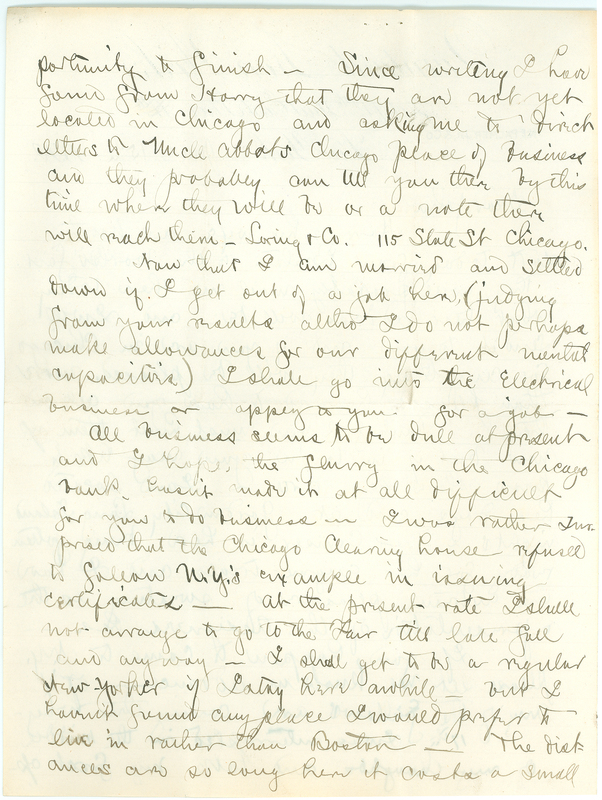 portunity to finish — Since writing I have
found from Harry that they are not yet
located in Chicago and asking me to direct
letters to Uncle Abbot's Chicago place of business
and they probably can tell you there by this
time where they will be or a note there
will reach them — Loring & Co. 115 State St Chicago.
Now that I am married and settled
down if I get out of a job here, (judging
from your results altho I do not perhaps
make allowances for our different mental
capacities) I shall go into the Electrical
business or apply to you for a job —
All business seems to be dull at present
and I hope, the flurry in the Chicago
bank, hasn't made it at all difficult
for you to do business — I was rather sur-
prised that the Chicago Clearing house refused
to follow N.Y.'s example in issuing
certificates — At the present rate I shall
not arrange to go to the Fair till late fall
and any way — I shall get to be a regular
New-Yorker if I stay here awhile — but I
haven't found any place I would prefer to
live in rather than Boston — The dist-
ances are so long here it costs a small